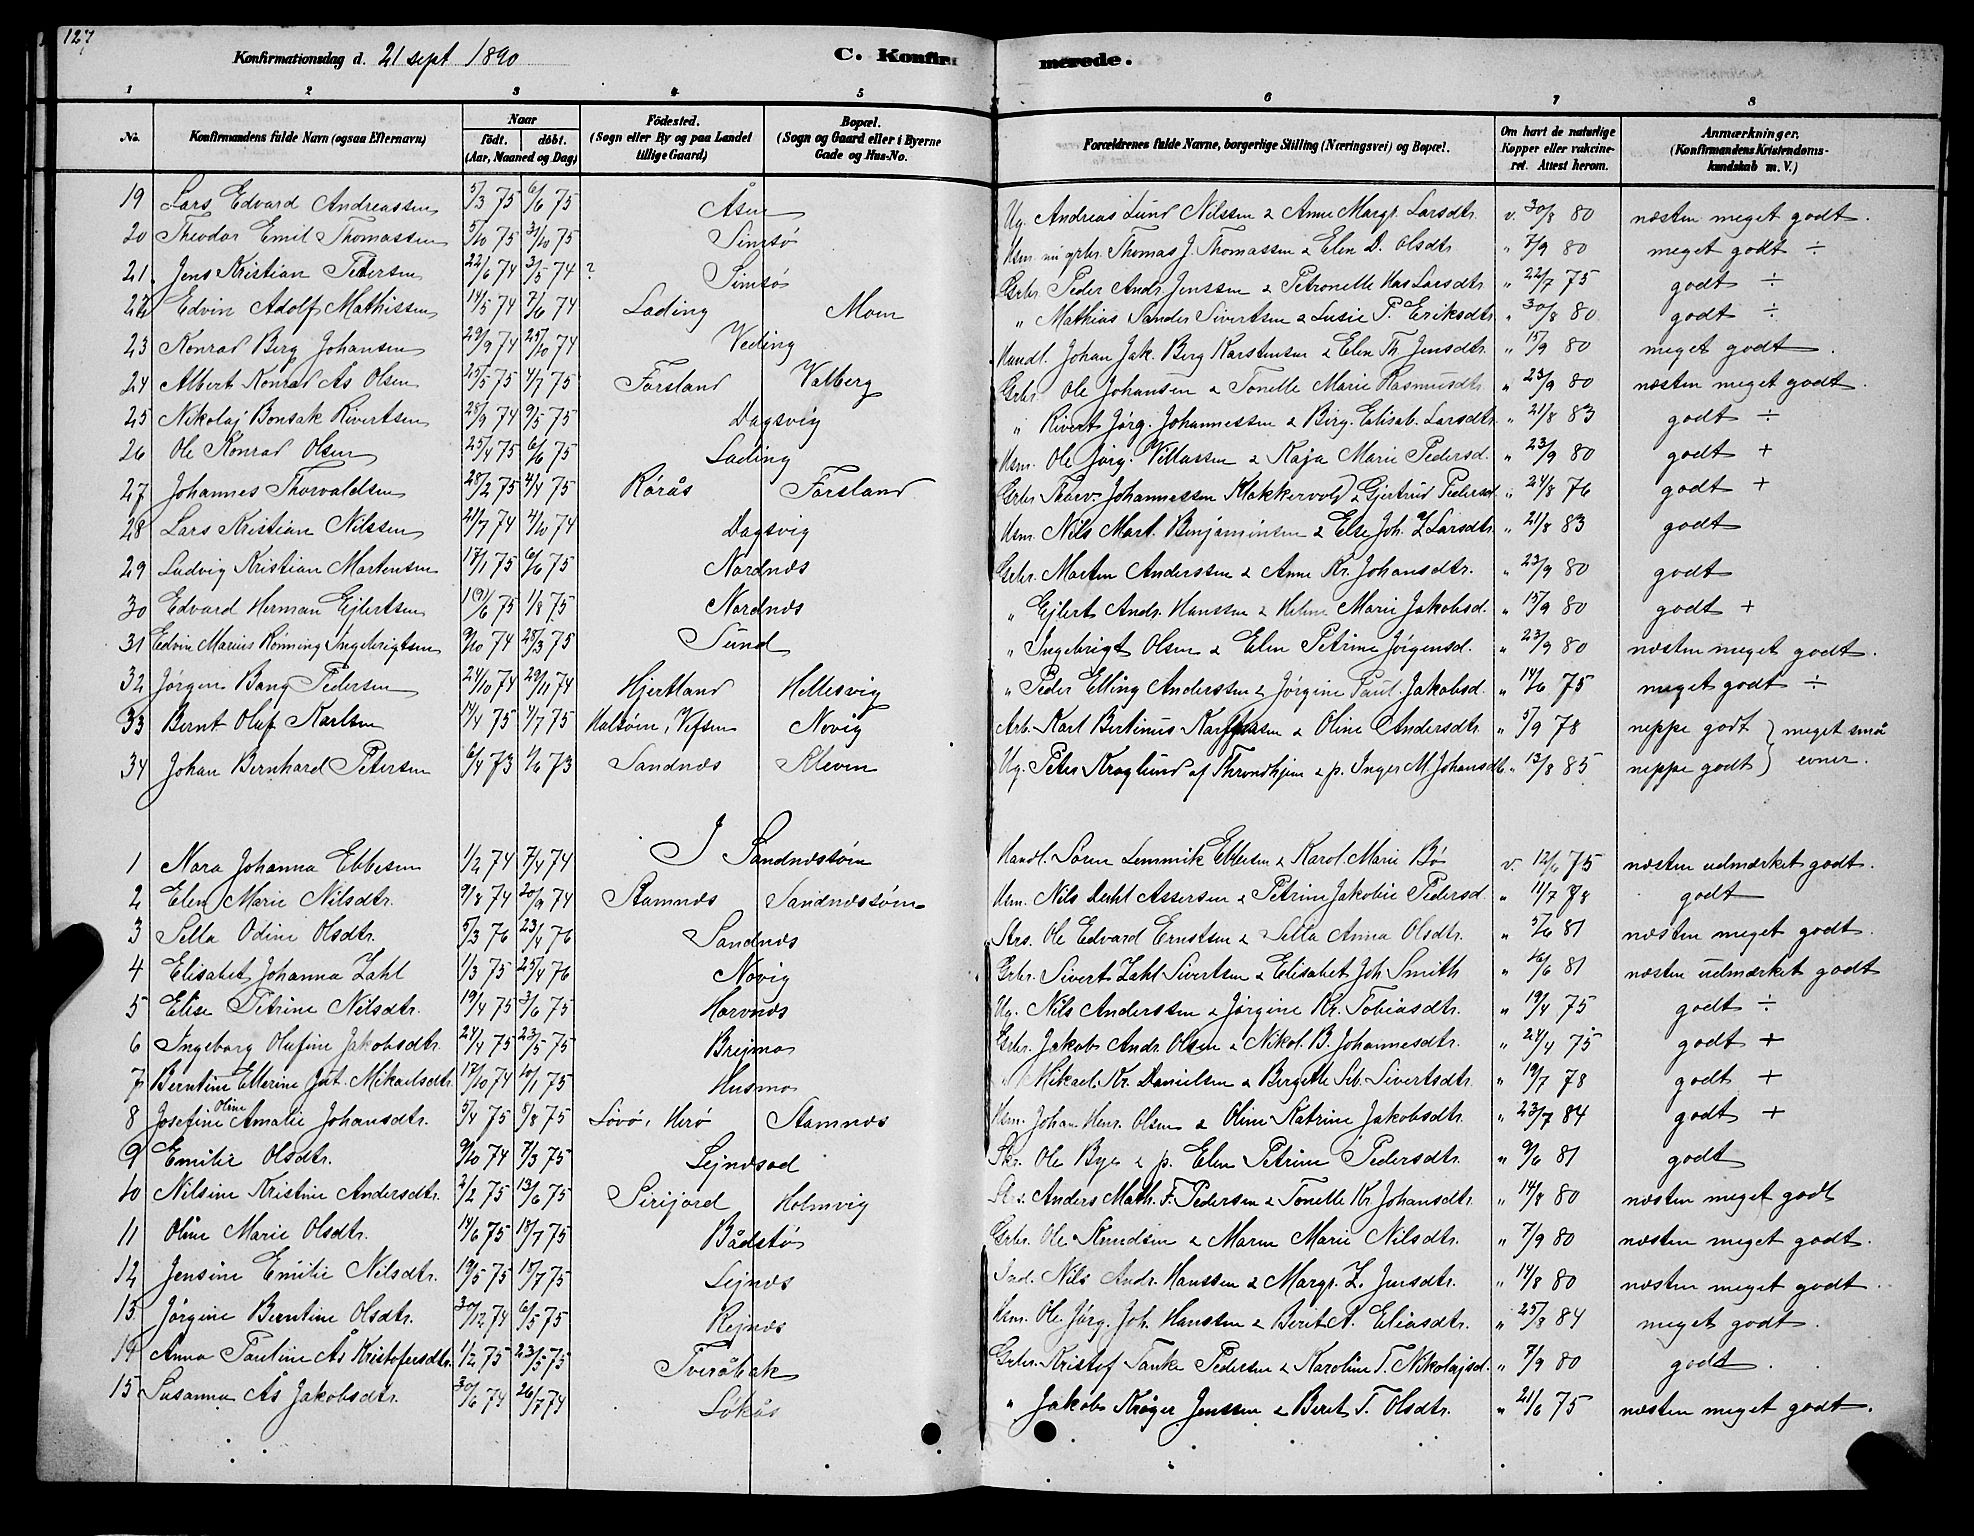 127
Konfirmationsdag d. 21 sept 1890 C. Konfirmerede.
1 2 3 4 5 6 7 8
No. Konfirmandens fulde Navn (ogsaa Efternavn) Naar födt. döbt. (Aar, Maaned og Dag) Födested. (Sogn eller By og paa Landet tillige Gaard) Bopæl. (Sogn og Gaard eller i Byerne Gade og Hus-No. Forældrenes fulde Navne, borgerlige Stilling (Næringsvei) og Bopæl. Om havt de naturlige Kopper eller vakcineret. Attest herom. Anmærkninger. (Konfirmandens Kristendomskundskab m. V.)
19 Lars Edvard Andreassen 5/3 75 6/6 75 Åsen Ug. Andreas Lund Nilssen & Anne Margr. Larsdtr. v. 30/8 80 næsten meget godt.
20 Theodor Emil Thomassen 5/10 75 31/10 75 Simsö Thomas J. Thomassen & Elen D. Olsdtr. " 7/9 80 meget godt ÷
21. Jens Kristian Petersen 22/6 74 3/5 74 ? Simsö Grbr. Peder Andr. Jenssen & Petronelle Larsdtr. " 22/7 75 godt ÷
22 Edvin Adolf Mathissen 14/5 74 7/6 74 Lading Moen " Mathias Sander Sivertsen & Lusie P. Eriksdtr. " 30/8 80 godt ÷
23 Konrad Berg Johansen 29/9 74 25/10 74 Veding Handl. Johan Jak. Berg Karstensen & Elen Th. Jensdtr. " 15/9 80 meget godt.
24 Albert Konrad Ås Olsen 25/5 75 4/7 75 Forsland Valberg Grbr. Ole Johansen & Tonelle Marie Rasmusdtr. " 23/9 80 næsten meget godt.
25 Nikolaj Bonsak Rivertsen 28/9 74 9/5 75 Dagsvig " Rivert Jörg. Johannessen & Birg. Elisab. Larsdtr. " 21/8 83 godt ÷
26 Ole Konrad Olsen 25/4 75 6/6 75 Lading Hsm. Ole Jörg. Villassen & Kaja Marie Pedersd. " 23/9 80 godt +
27 Johannes Thorvaldsen 28/2 75 4/4 75 Rörås Forsland Grbr. Thorv. Johannessen Klakkervold & Gjertrud Pedersd. " 24/8 76 godt +
28 Lars Kristian Nilssen 21/7 74 4/10 74 Dagsvig Hsm. Nils Mart. Benjaminsen & Else Joh. Z Larsdtr. " 21/8 83 godt
29 Ludvig Kristian Martensen 17/1 75 6/6 75 Nordnæs Grbr. Morten Anderssen & Anne Kr. Johansdtr. " 23/9 80 godt
30 Edvard Herman Ejlertsen 75 1/8 75 Nordnæs " Ejlert Andr. Hanssen & Marie Jakobsd. " 15/9 80 godt +
31 Edvin Marius Rönning Ingebrigtsen 9/10 74 28/3 75 Sund " Ingebrigt Olsen & Elen Petrine Jörgensd. " 23/9 80 næsten meget godt.
32 Jörgen Bang Pedersen 24/10 74 29/11 74 Hjertland Hellesvig " Peder Elling Anderssen & Jörgine Paul. Jakobsd. " 14/6 75 meget godt ÷
33 Bernt Oluf Karlsen 14/4 75 4/7 75 Halsöen, Vefsen Novig Arb. Karl Bertinus & Oline Andersdtr. " 5/9 78 neppe godt } meget små
34 Johan Bernhard Petersen 6/4 73 1/6 73 Sandnæs Kleven Ug. Peter Kroglund af Throndhjem & p. Inger M Johansdtr " 13/8 85 neppe godt } evner.
1 Nora Johanna Ebbesen 1/2 74 7/4 74 I Sandnæsöen Handl. Soren Lemmik Ebbesen & Karol. Marie Bö v. 12/6 75 næsten udmærket godt.
2 Elen Marie Nilsdtr. 9/8 74 20/9 74 Stamnæs Sandnæsöen Hsm. Nils Dahl Assersen & Petrine Jakobie Pedersd. " 11/7 78 godt
3 Sella Odine Olsdtr. 5/3 76 23/4 76 Sandnæs Strs. Ole Edvard Ernstsen & Sella Anna Olsdtr. " 5/6 81 næsten meget godt.
4 Elisabet Johanna Zahl 1/3 75 25/4 76 Novig Grbr. Sivert Zahl Sivertsen & Elisabet Joh. Smith " 16/6 81 næsten udmærket godt
5 Elise Petrine Nilsdtr. 19/4 75 3/6 75 Horvnæs Ug. Nils Anderssen & Jörgine Kr. Tobiasdtr. " 19/4 75 godt ÷
6 Ingeborg Olufine Jakobsdtr. 24/4 75 23/5 75 Brejmo Grbr. Jakob Andr. Olsen & Nikol. B. Johannesdtr. " 24/4 75 godt +
7 Berntine Ellerine Jul. Mikaelsdtr. 17/10 74 10/1 75 Husmo " Mikael Kr. Danielsen & Bergitte Sib. Sivertsdtr. " 19/7 78 godt +
8 Josefine Oline Amalie Johansdtr. 5/4 75 8/8 75 Sövö, Herö Stamnæs Hsm. Johan Henr. Olsen & Oline Katrine Jakobsdtr. " 23/7 84 godt +
9 Emilie Olsdtr. 9/10 74 7/3 75 Lejnæsod Skr. Ole Bye & p. Elen Petrine Pedersdtr. " 9/6 81 godt
10 Nilsine Kristine Andersdtr. 2/2 75 13/6 75 Serijord Holmvig Anders Math. F. Pedersen & Tonelle Kr. Johansdtr. " 14/8 80 næsten meget godt
11 Oline Marie Olsdtr. 14/6 75 18/7 75 Bådstö Grbr. Ole Knudsen & Maren Marie Nilsdtr. " 7/9 80 næsten meget godt.
12 Jensine Emilie Nilsdtr. 19/5 75 18/7 75 Lejnæs Ind. Nils Andr. Hanssen & Margr. L. Jensdtr. " 14/8 80 næsten meget godt.
13 Jörgine Berntine Olsdtr. 30/12 74 6/5 75 Rejnæs Hsm. Ole Jörg. Joh. Hanssen & Berit A. Eliasdtr. " 25/8 84 meget godt.
14 Anna Pauline Ås Kristofersdtr. 1/2 75 23/5 75 Tveråbak Grbr. Kristof Tanke Pedersen & Karoline T. Nikolajsd. " 7/9 80 godt.
15 Susanna Ås Jakobsdtr. 30/6 74 26/7 74 Sökås " Jakob Kröger Jenssen & Beret T. Olsdtr. " 21/6 75 næsten meget godt.